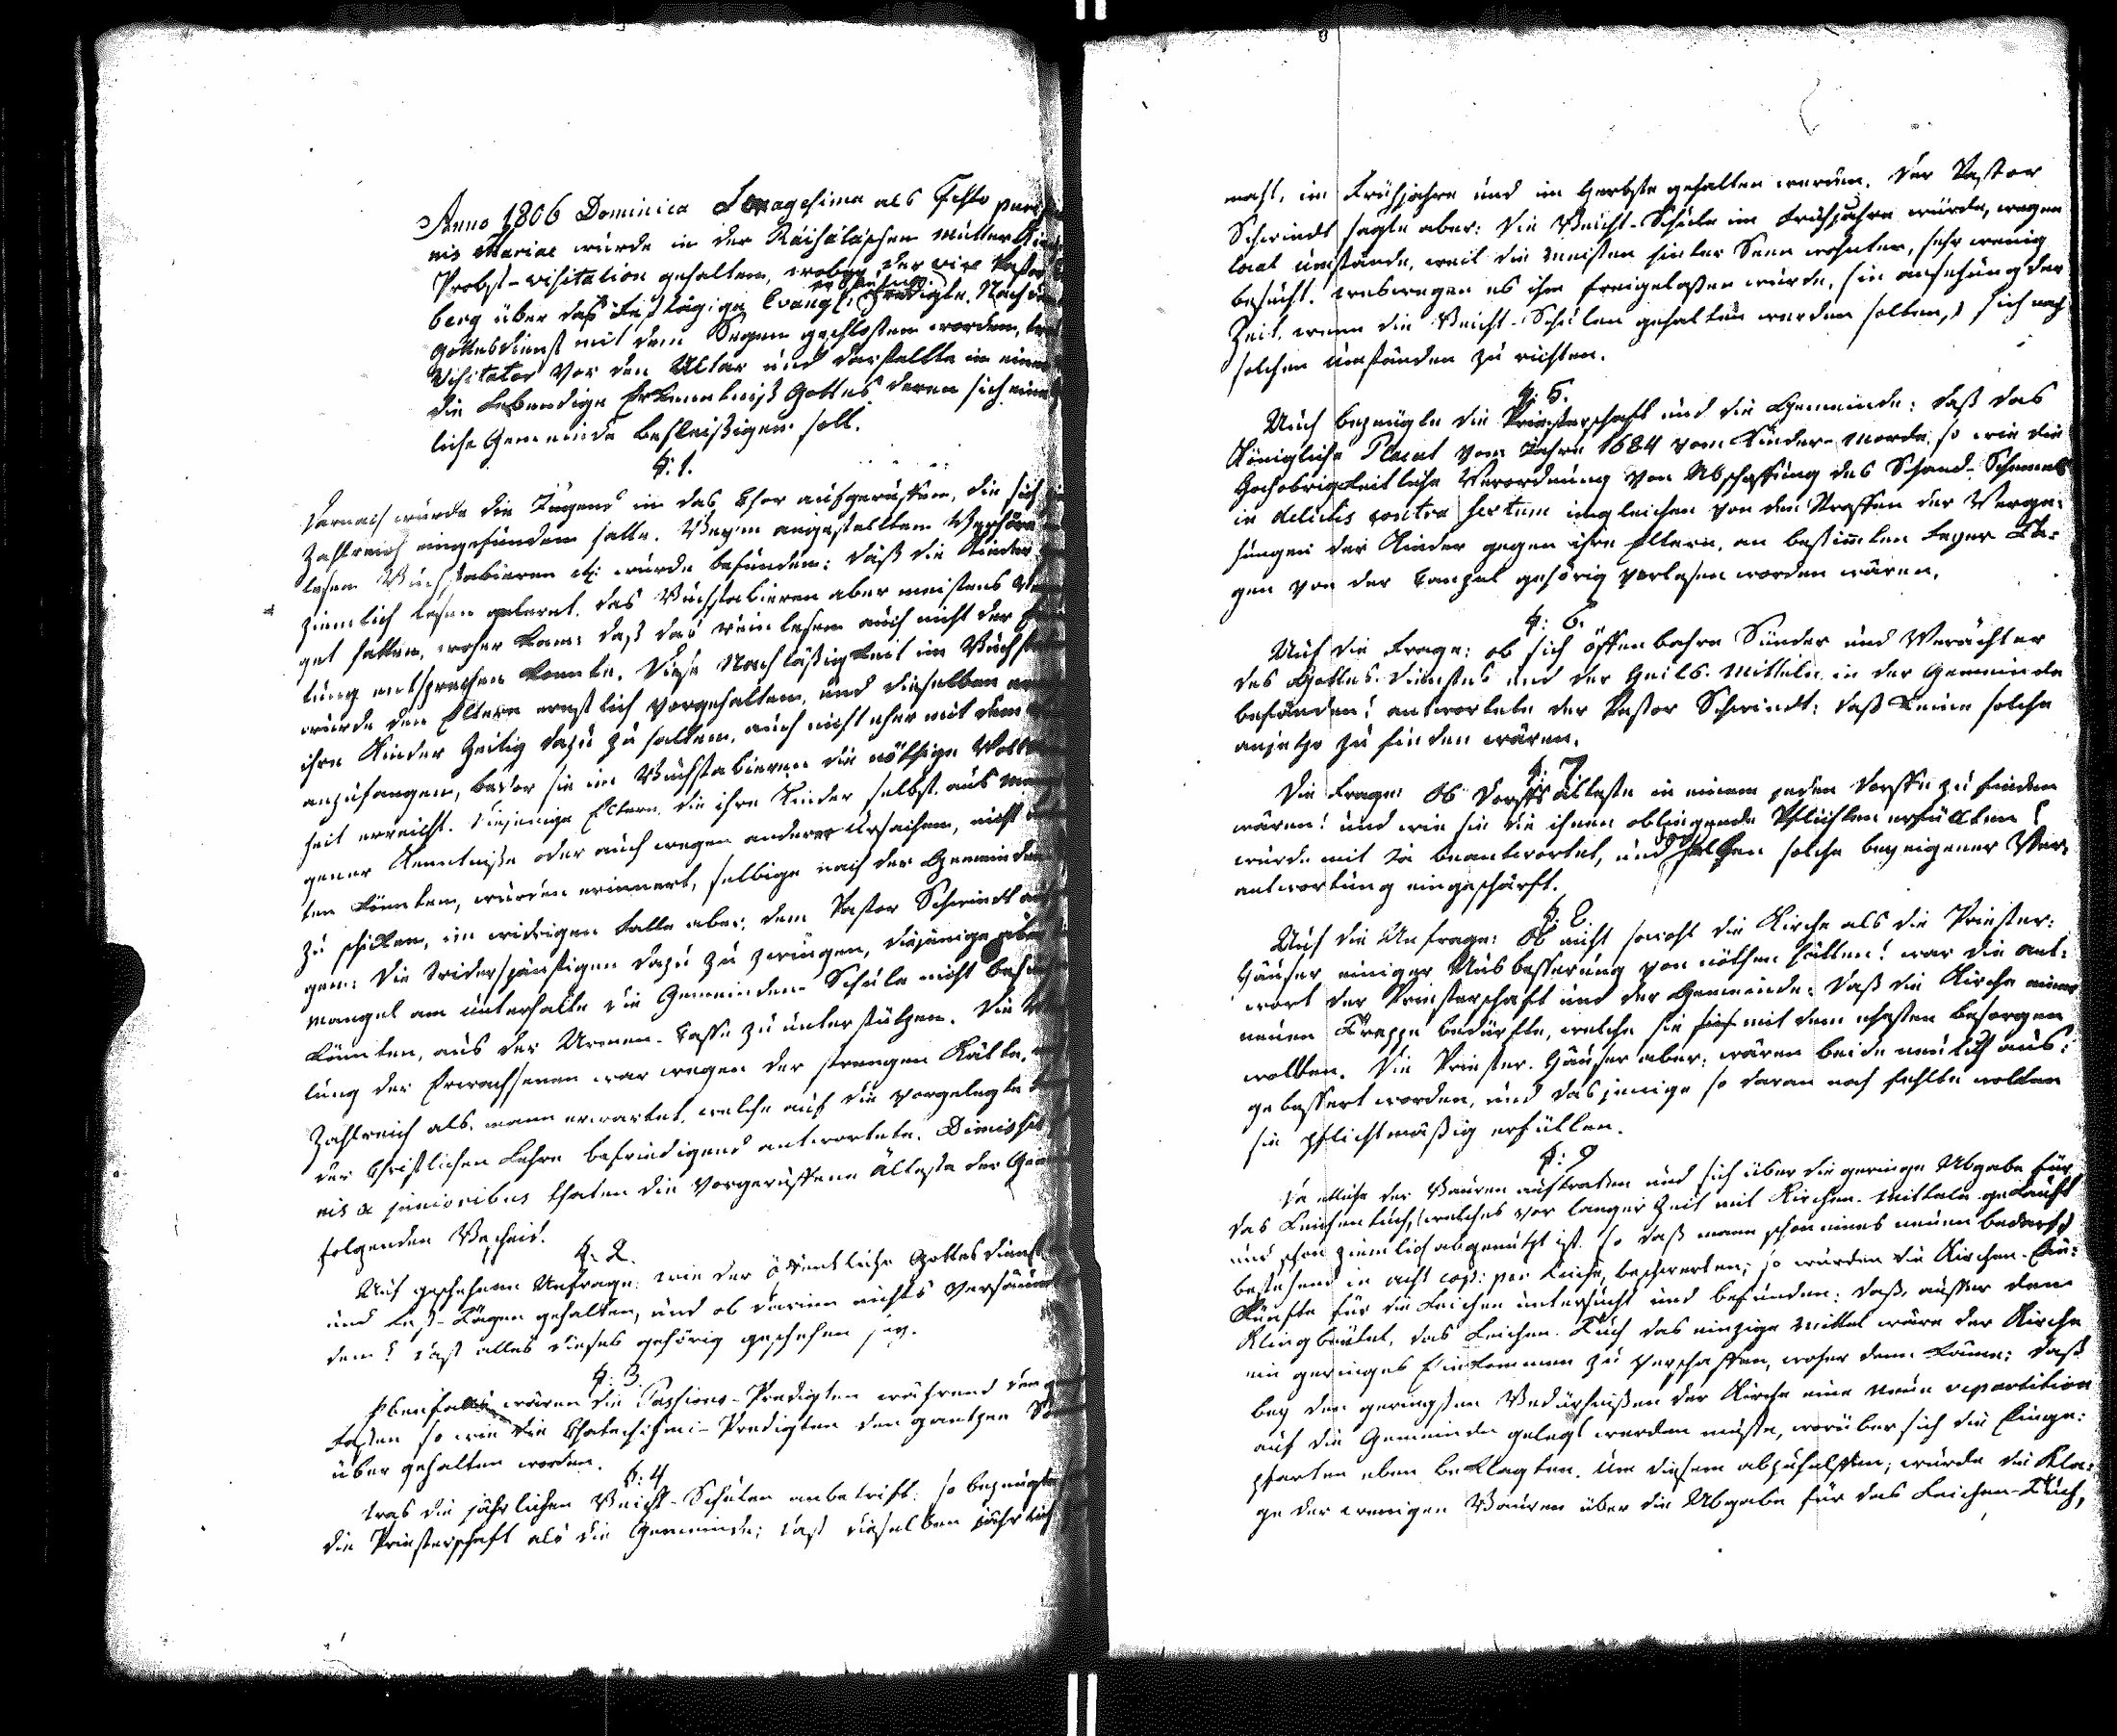 Anno 1806 Dominica Sexagesima als Festo purificatio
nis Mariae wurde in der Räisäläschen Mutter Kirche
Probst-visitation gehalten, wobey der vice Pastor
berg über das Festtägige Evangl: predigte. Nachdem
Gottesdienst mit dem Segen geschlossen worden, trat
Visitator vor den Altar und darstellte in einer
die Lebendige Erkenntniß Gottes deren sich eine
liche Gemeinde befleißigen soll.
§. 1.
Darnach wurde die Jugend in das Chor aufgeruffen, die sich
Zahlreich eingefunden hatte. Bey'm angestellten Verhöre
lesen Buchstabieren etc: wurde befunden: daß die Kinder
ziemlich lesen gelernt. das Buchstabieren aber meistens
get hatten, woher kam: daß das rein lesen auch nicht der
tung entsprechen konnte. Diese Nachläßigkeit im Buchsta
wurde den Eltern ernstlich vorgehalten, und dieselben
ihre Kinder Zeitig dazu zu halten, auch nicht eher mit dem
anzufangen, bevor sie im Buchstabieren die nöthige Voll
heit erreicht. Diejenige Eltern, die ihre Kinder selbst aus
gener Kenntniße oder auch wegen anderer Ursachen, nicht
ten könnten, wurden erinnert, selbige nach der Gemeinden
zu schicken, im widrigen Falle aber, dem Pastor Schwindt
gen: die Widerspänstigen dazu zu zwingen, diejenige aber
Mangel am Unterhalte die Gemeinden-Schule nicht besu
könnten, aus der Armen-Casse zu unterstützen. Die
lung der Erwachsenen war wegen der strengen Kälte,
Zahlreich als, mann erwartet, welche auf die vorgelegte
der Christlichen Lehre befriedigend antwortete. Dimissis
nis a junioribus thaten die vorgeruffene Älteste der Gem
folgenden Bescheid.
§. 2.
Auf geschehene Anfrage: wie der öffentliche Gottesdienst
und Fest-Tägen gehalten, und ob darinn nichts versäumt
den? daß alles dieses gehörig geschehen sey.
§. 3
Ebenfalls wären die Passions-Predigten während der
Fasten so wie die Chatechismi-Predigten den gantzen
über gehalten worden.
§. 4
Was die jährlichen Beicht-Schulen anbetrift: so bezeugte
die Priesterschaft als die Gemeinde; daß dieselben jährlich
mahl, im Frühjahre und im Herbste gehalten werden. Der Pastor
Schwindt sagte aber: die Beicht-Schule im Frühjahre würde, wegen
local umstände, weil die meisten hinter Seen wohnten, sehr wenig
besucht. weswegen es ihm freigelaßen wurde, (in ansehung der
Zeit, wenn die Beicht-Schulen gehalten werden sollen,) sich nach
solchen umständen zu richten.
§. 5.
Auch bezeugte die Priesterschaft und die Gemeinde: daß das
Königliche Placat vom Jahre 1684 vom Kinder-Morde, so wie die
Hochobrigkeitliche Verordnung von Abschaffung des Schand-Schemels
in delictis contra sextum ungleichen von den Straffen der Verge-
hungen der Kinder gegen ihre Eltern, an bestimmten Feyer Ta-
gen von der Canzel gehörig verlesen worden wären.
§. 6.
Auf die Frage: ob sich öffenbahre Sünder und Verächter
des Gottes-dienstes und der Heils-Mitteln in der Gemeinde
befänden? antwortete der Pastor Schwindt: daß keine solche
anjetzo zu finden wären.
§. 7
Die Frage: Ob Dorffs älteste in einem jeden Dorffe zu finden
wären? und wie sie die ihnen obliegende Pflichten erfüllten?
wurde mit Ja beantwortet, und solche bey eigener Ver-
antwortung eingeschärft.
§. 8.
Auf die Anfrage: Ob nicht sowohl die Kirche als die Priester-
häuser einiger Ausbesserung von nöthen hätten? war die ant-
wort der Priesterschaft und der Gemeinde: daß die Kirche einer
neuen Treppe bedürfte, welche sie mit dem ehesten besorgen
wollten. Die Priester-Häuser aber, wären beide neulich aus-
gebessert worden, und dasjenige so daran noch fehlte wollten
sie pflichtmäßig erfüllen.
§. 9
Da etliche der Bauren auftraten und sich über die geringe Abgabe für
das Leichentuch, (welches vor langer Zeit mit Kirchen-Mitteln gekauft
und schon ziemlich abgenutzt ist, so daß mann schon eines neuen bedarf,)
bestehend in acht cop: per Leiche, beschwerten; so wurden die Kirchen-Ein-
künfte für die Leichen untersucht und befunden: daß, ausser dem
Klingbeutel, das Leichen-Tuch das einzige Mittel wäre der Kirche
ein geringes Einkommen zu verschaffen, woher denn käme: daß
bey den geringsten Bedürfnißen der Kirche eine neue repartition
auf die Gemeinde gelegt werden müßte, worüber sich die Einge-
pfarrten eben beklagten. Um diesem abzuhelffen, wurde die Kla-
ge der wenigen Bauren über die Abgabe für das Leichen-Tuch,